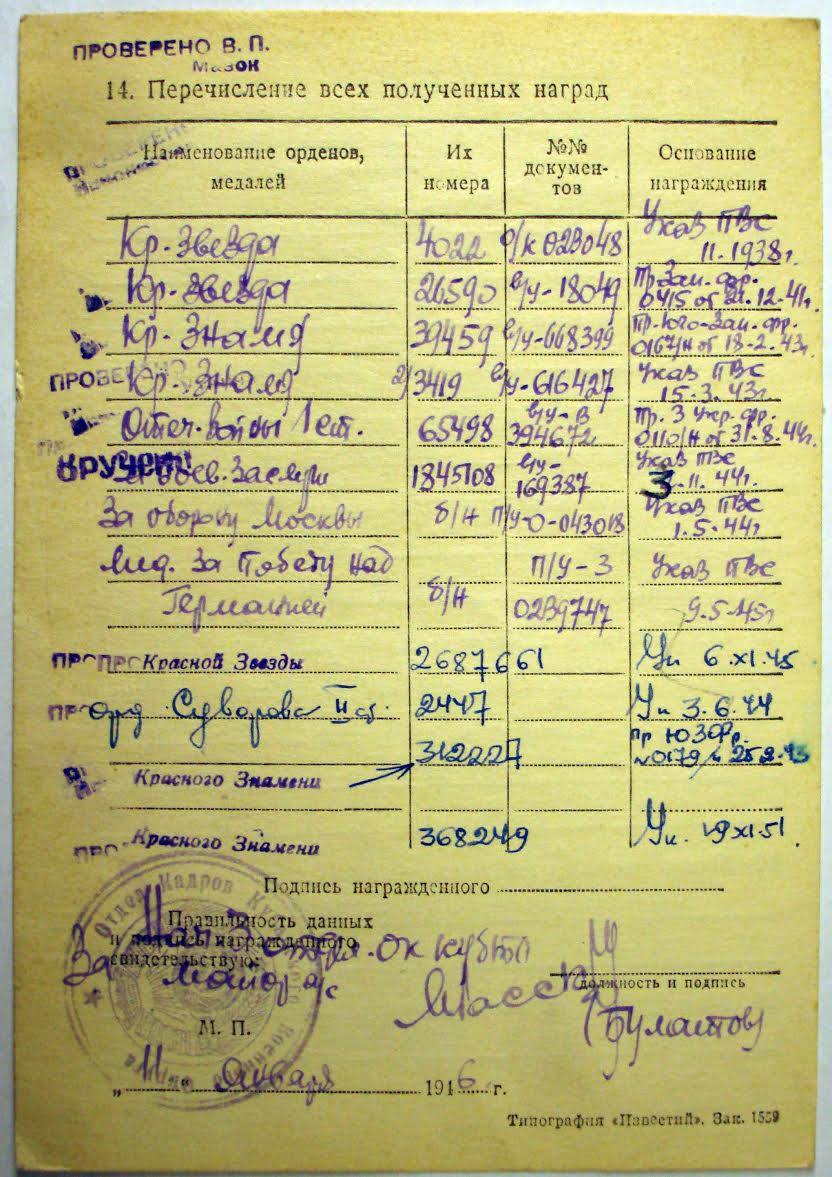 ПРОВЕРЕНО В. П.
14. Перечисление всех полученных наград
Наименование орденов, медалей
Их номера
№№ документов
Основание награждения
Кр. Звезда 4022 о/к 023048 Указ ПВС 11.1938г.
Кр. Звезда 26590 в/у-18049 Пр. Зап. фр. 0415 от 12.41г.
Кр. Знамя 39459 в/у-668399 Пр. Юго-Зап. фр. 0167/н от 18-2.43г.
ПРОВЕРЕНО
Кр. Знамя 2/3419 в/у-616427 Указ ПВС 15.3.43г.
Отеч. войны 1 ст. 65498 в/у-В 394672 Пр. 3 Укр. фр. 0110/н от 31.8.44г.
ВРУЧЕН
За боев. Заслуги 1845108 в/у-169387 Указ ПВС 3.11.44г.
За оборону Москвы б/н п/у-0-043018 Указ ПВС 1.5.44г
Мед. За Победу над П/У-З Указ ПВС
Германией б/н 0239747 9.5.45г
Красной Звезды 2687661 Ук 6.XI.45
орд Суворова II ст. 2447 Ук 3.6.44
312227 пр ЮЗФр. №0179/н 25.2.43
Красного Знамени
Красного Знамени 368249 Ук. 19.XI.51
Подпись награжденного
Правильность данных
и подпись награжденного
свидетельствую:
За Нач. отдел. ОК КубВО
майор а/с
должность и подпись
(Булатов)
М. П.
„11“ Января 1946 г.
Типография «Известий». Зак. 1559